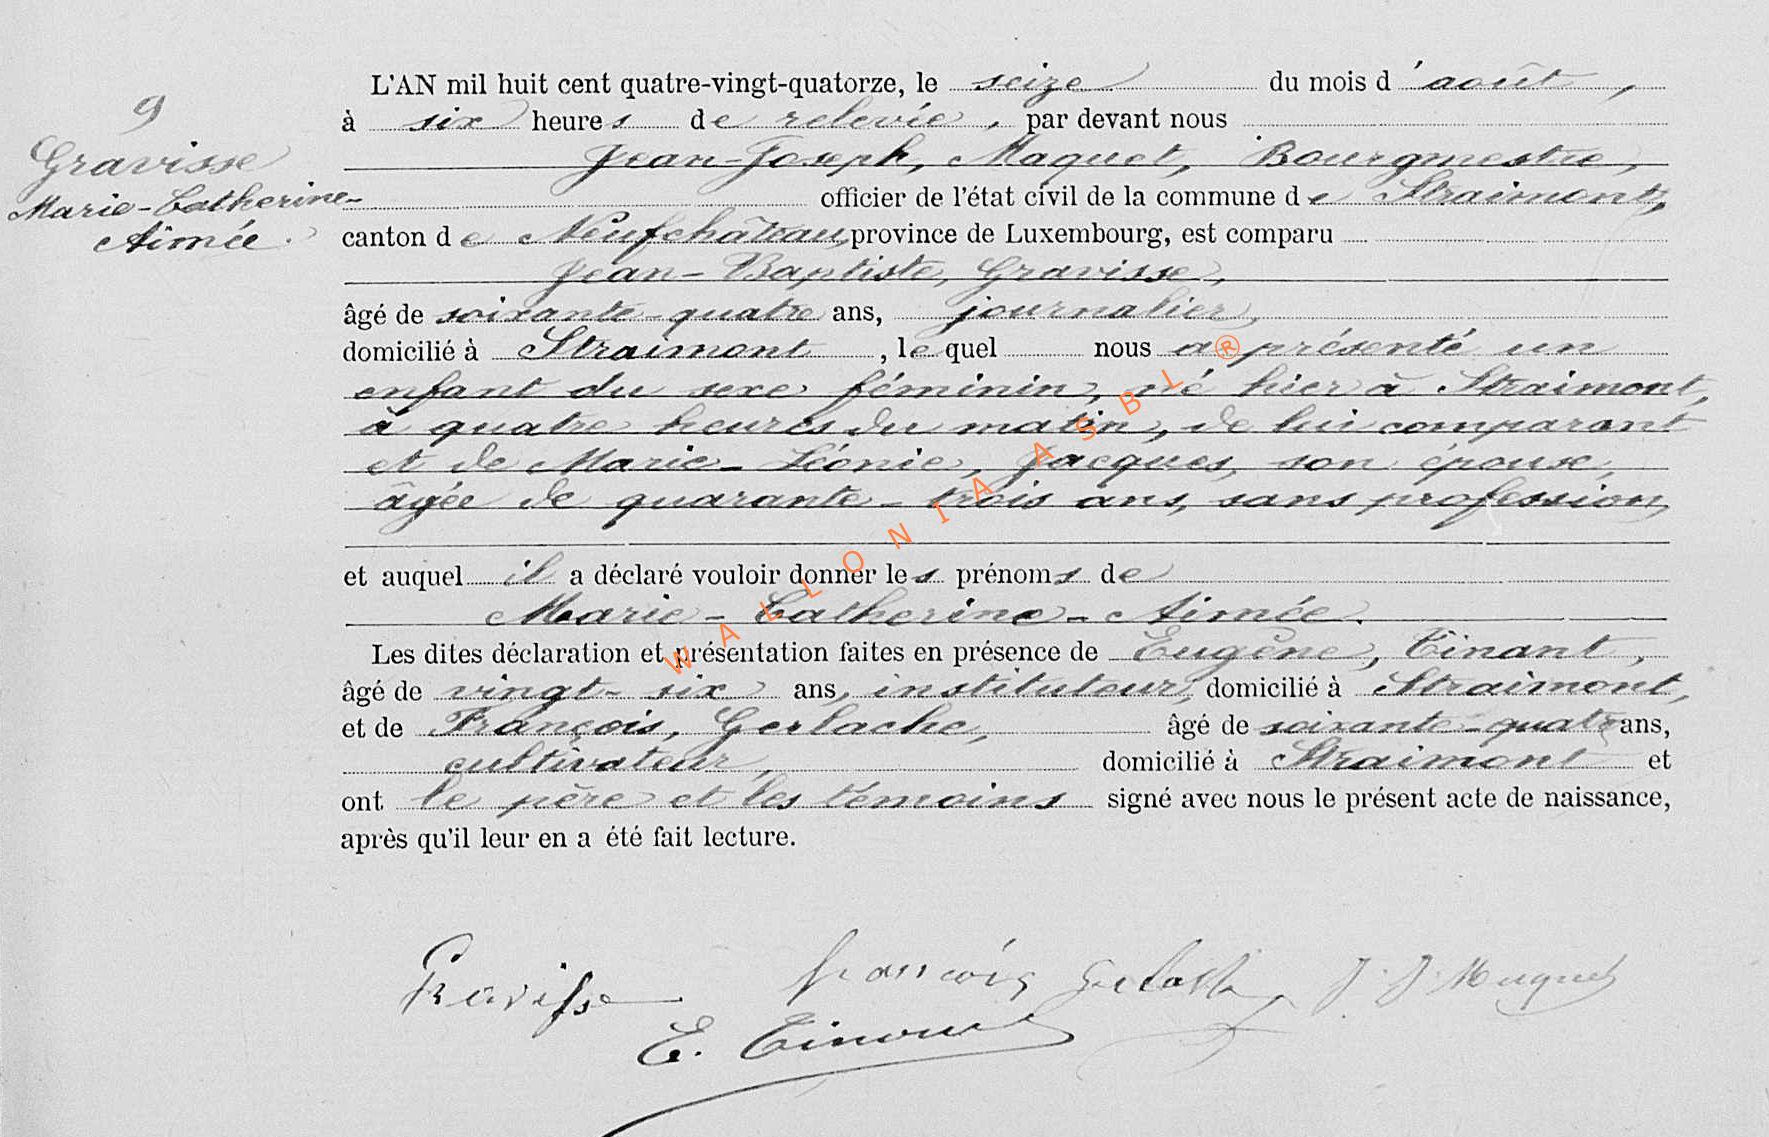 9
Gravisse
Marie-Catherine-
Aimée.
L'AN mil huit cent quatre-vingt-quatorze, le seize du mois d'août,
à six heures de relevée, par devant nous
Jean-Joseph, Maquet, Bourgmestre,
officier de l'état civil de la commune de Straimont,
canton de Neufchâteau, province de Luxembourg, est comparu
Jean-Baptiste, Gravisse,
âgé de soixante-quatre ans, journalier,
domicilié à Straimont, lequel nous a présenté un
enfant du sexe féminin, né hier à Straimont,
à quatre heures du matin, de lui comparant
et de Marie-Léonie, Jacques, son épouse,
âgée de quarante-trois ans, sans profession,
et auquel il a déclaré vouloir donner les prénoms de
Marie-Catherine-Aimée.
Les dites déclaration et présentation faites en présence de Eugène, Tinant,
âgé de vingt-six ans, instituteur, domicilié à Straimont,
et de François, Gerlache, âgé de soixante-quatre ans,
cultivateur, domicilié à Straimont et
ont le père et les témoins signé avec nous le présent acte de naissance,
après qu'il leur en a été fait lecture.
Gravisse François Gerlache J. J. Maquet
E. Tinant
WALLONIA ASBL ®